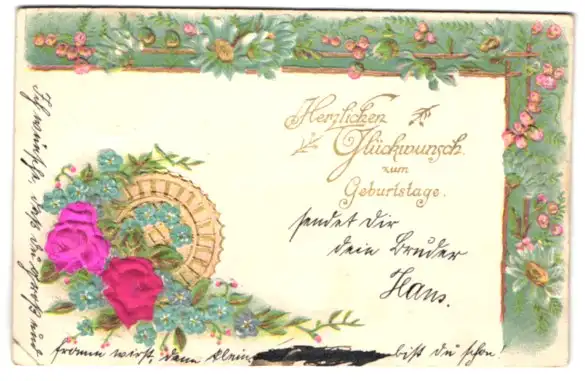 Herzlichen
Glückwunsch
zum
Geburtstage.
sendet Dir
dein Bruder
Hans.
Ich wünsche, daß du groß und
fromm wirst, denn klein bist du schon!